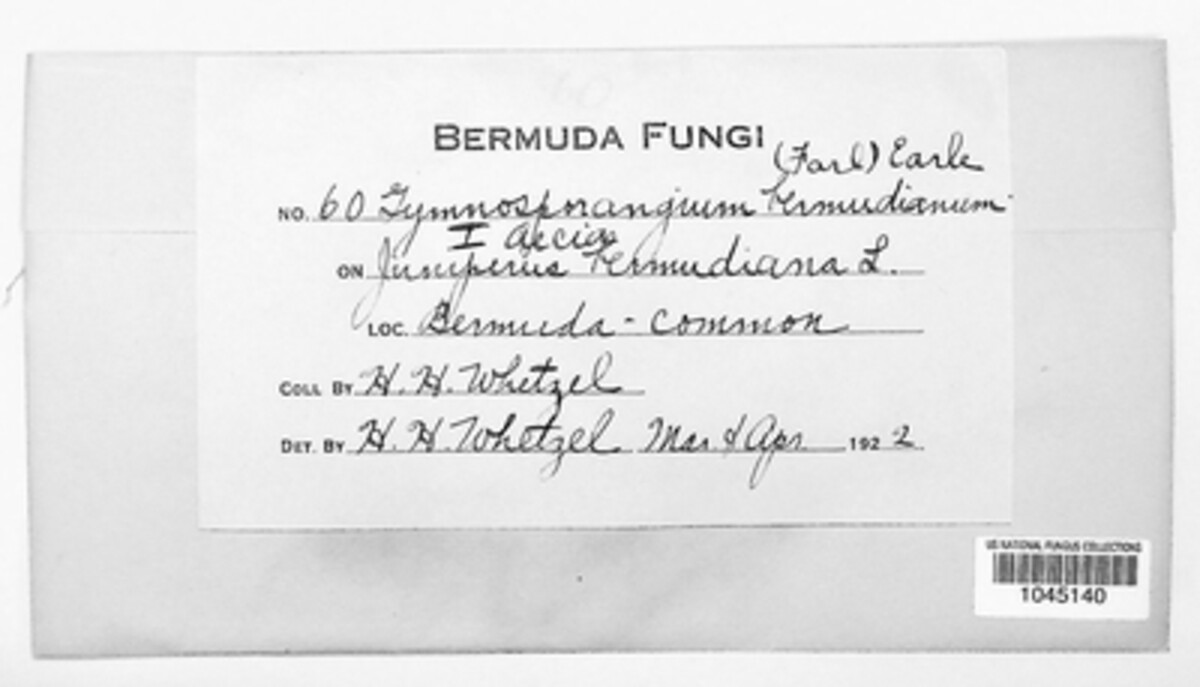 BERMUDA FUNGI
(Farl) Earle
NO. 60 Gymnosporangium bermudianum
I aecia
ON Juniperus bermudiana L.
LOC. Bermuda - common
COLL BY H. H. Whetzel
DET. BY H. H. Whetzel Mar & Apr 1922
US NATIONAL FUNGUS COLLECTIONS
1045140